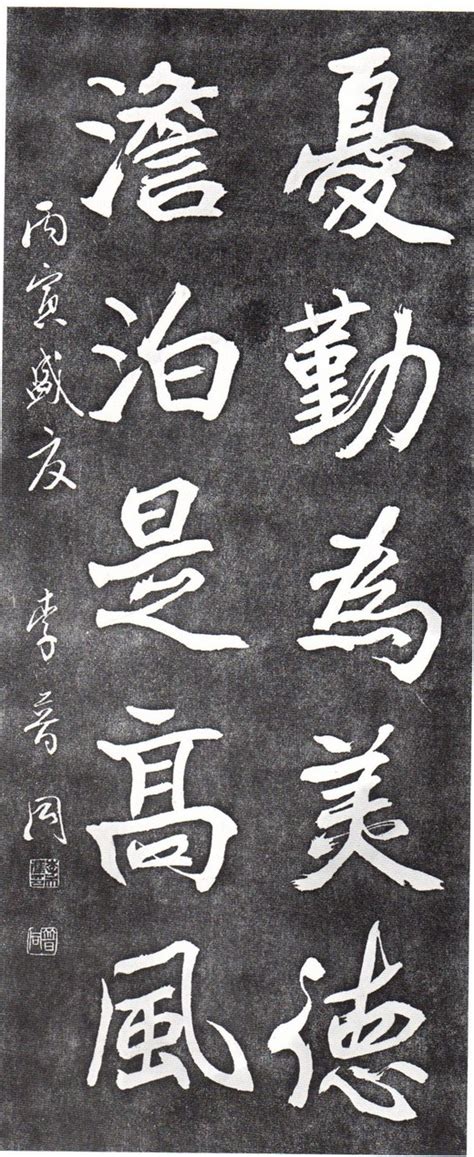 憂勤為美德
澹泊是高風
丙寅盛夏 李普同